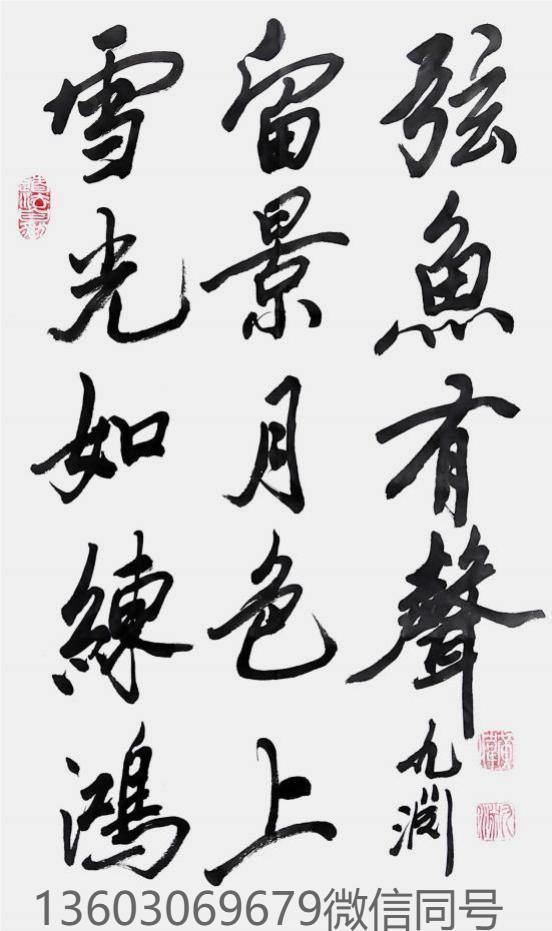 雪光如練鴻
留景月色上
弦魚有聲
九渊
13603069679微信同号